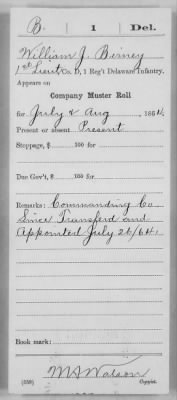 B. 1 Del.
William J. Birney
1st Lieut, Co. D, 1 Reg't Delaware Infantry.
Appears on
Company Muster Roll
for July & Aug, 1864.
Present or absent Present
Stoppage, $ 100 for
Due Gov't, $ 100 for
Remarks: Commanding Co
Since Transferd and
Appointed July 26/64.
Book mark:
M A Watson
(358) Copyist.